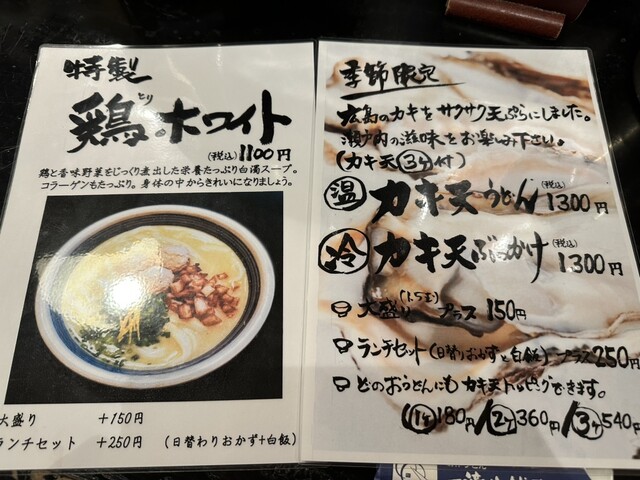 特製
とり
鶏・ホワイト
(税込) 1100円
鶏と香味野菜をじっくり煮出した栄養たっぷり白濁スープ。
コラーゲンもたっぷり。身体の中からきれいになりましょう。
大盛り +150円
ランチセット +250円 (日替わりおかず+白飯)
季節限定
広島のカキをサクサク天ぷらにしました。
瀬戸内の滋味をお楽しみ下さい。
(カキ天3ケ付)
温 カキ天うどん (税込) 1300円
冷 カキ天ぶっかけ (税込) 1300円
大盛り(1.5玉) プラス 150円
ランチセット(日替りおかずと白飯) プラス 250円
どのおうどんにもカキ天トッピングできます。
1ケ 180円 2ケ 360円 3ケ 540円